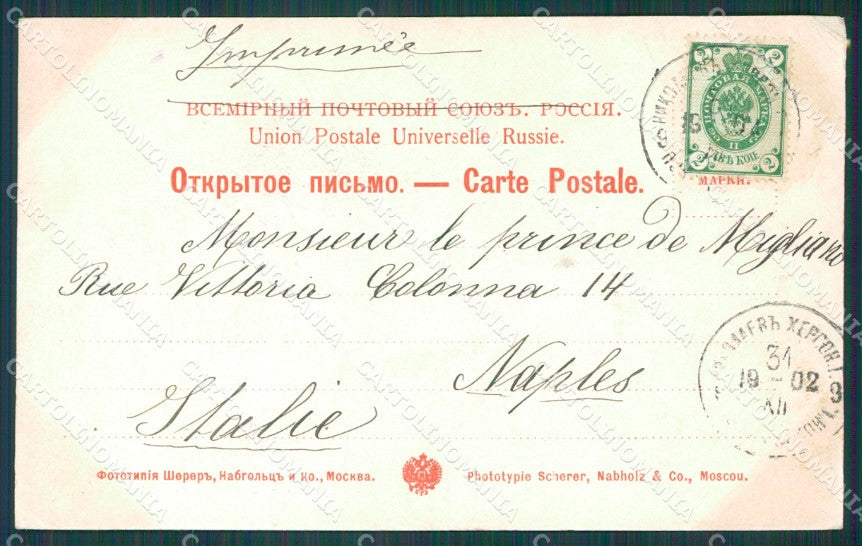 Imprimée
ВСЕМІРНЫЙ ПОЧТОВЫЙ СОЮЗЪ. РОССІЯ.
Union Postale Universelle Russie.
Открытое письмо. — Carte Postale.
2 2
ПОЧТОВАЯ МАРКА
II
ДВѢ КОП.
2 2
МАРКИ.
Monsieur le prince de Migliano
Rue Vittoria Colonna 14
Naples
Italie
ХЕРСОН.Г.
31
19 - 02
XII
Фототипія Шереръ, Набгольцъ и Ко., Москва.
Phototypie Scherer, Nabholz & Co., Moscou.
CARTOLINOMANIA